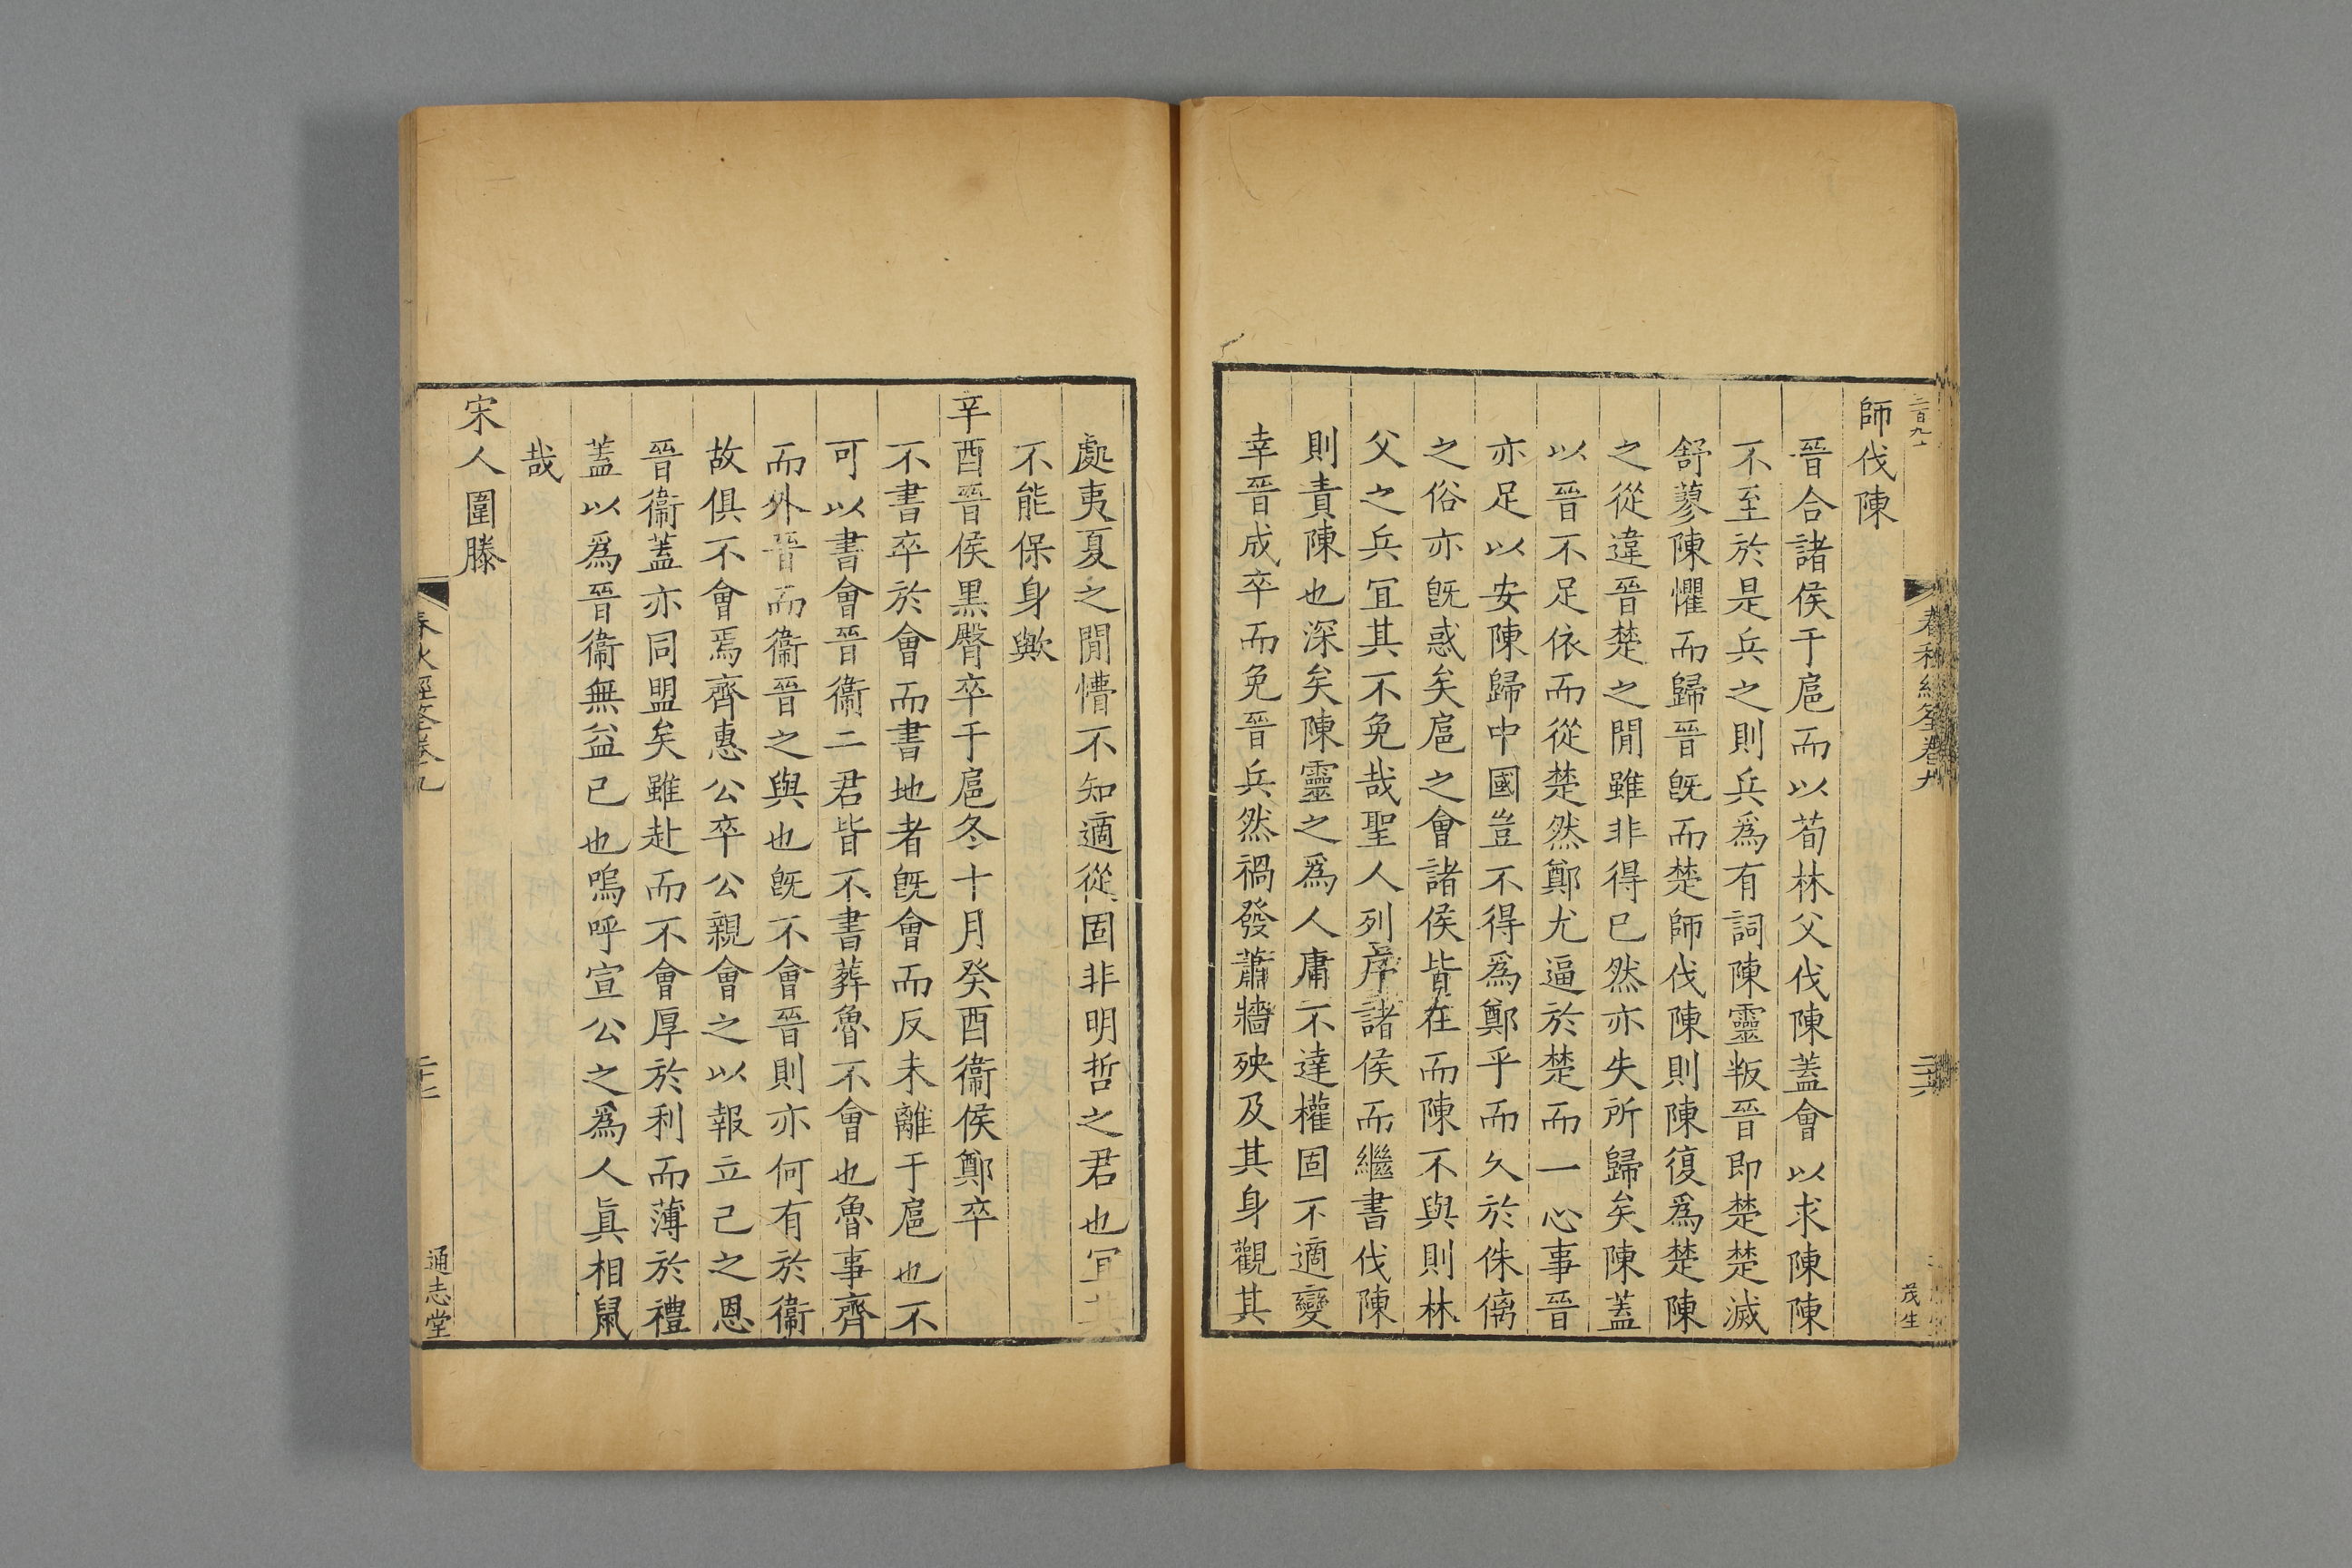 師伐陳
晉合諸侯于扈而以荀林父伐陳蓋會以求陳陳
不至於是兵之則兵爲有詞陳靈叛晉即楚楚滅
舒蓼陳懼而歸晉旣而楚師伐陳則陳復爲楚陳
之從違晉楚之閒雖非得已然亦失所歸矣陳蓋
以晉不足依而從楚然鄭尤逼於楚而一心事晉
亦足以安陳歸中國豈不得爲鄭乎而久於侏㒧
之俗亦旣惑矣扈之會諸侯皆在而陳不與則林
父之兵冝其不免哉聖人列序諸侯而繼書伐陳
則責陳也深矣陳靈之爲人庸不達權固不適變
幸晉成卒而免晉兵然禍發蕭牆殃及其身觀其
春秋經筌卷九
二十六
茂生
處夷夏之閒懵不知適從固非明哲之君也冝
不能保身歟
辛酉晉侯黑臀卒于扈冬十月癸酉衞侯鄭卒
不書卒於會而書地者旣會而反未離于扈也不
可以書會晉衞二君皆不書葬魯不會也魯事齊
而外晉而衞晉之與也旣不會晉則亦何有於衞
故俱不會焉齊惠公卒公親會之以報立己之恩
晉衞蓋亦同盟矣雖赴而不會厚於利而薄於禮
蓋以爲晉衞無益已也嗚呼宣公之爲人眞相鼠
哉
宋人圍滕
春秋經筌卷九
通志堂